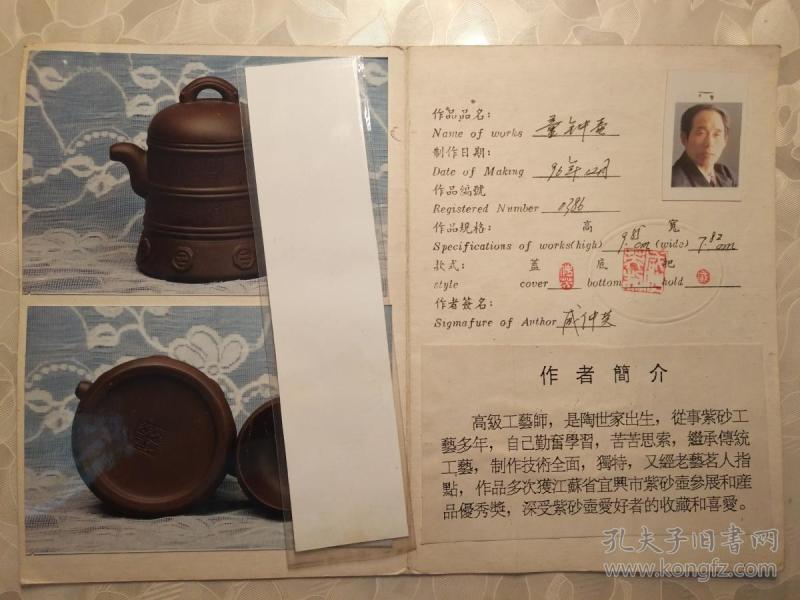 作品品名：
Name of works 壶
制作日期：
Date of Making 96年12月
作品編號
Registered Number 0386
作品規格： 高 寬
Specifications of works(high) 9.85 cm (wide) 7.82 cm
款式： 蓋 底 把
style cover bottom hold
作者簽名：
Sigmafure of Anthor
作者簡介
高級工藝師，是陶世家出生，從事紫砂工
藝多年，自己勤奮學習，苦苦思索，繼承傳統
工藝，制作技術全面，獨特，又經老藝茗人指
點，作品多次獲江蘇省宜興市紫砂壺參展和産
品優秀獎，深受紫砂壺愛好者的收藏和喜愛。
孔夫子旧書网
www.kongfz.com